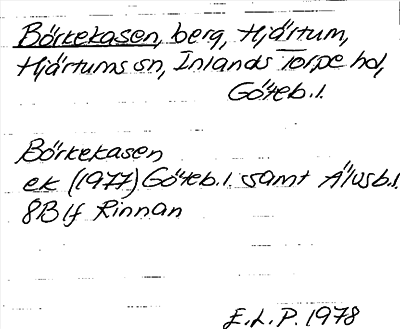 Börkekasen, berg, Hjärtum,
Hjärtums sn, Inlands Torpe hd,
Göteb. l.
Börkekasen
ek (1977) Göteb. l. samt Älvsb. l.
8B lf Rinnan
E. L. P. 1978